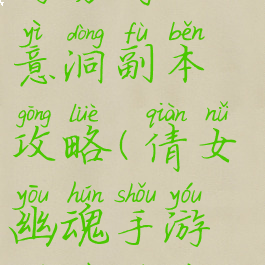 yì dòng fù běn
意洞副本
gōng lüè qiàn nǚ
攻略(倩女
yōu hún shǒu yóu
幽魂手游